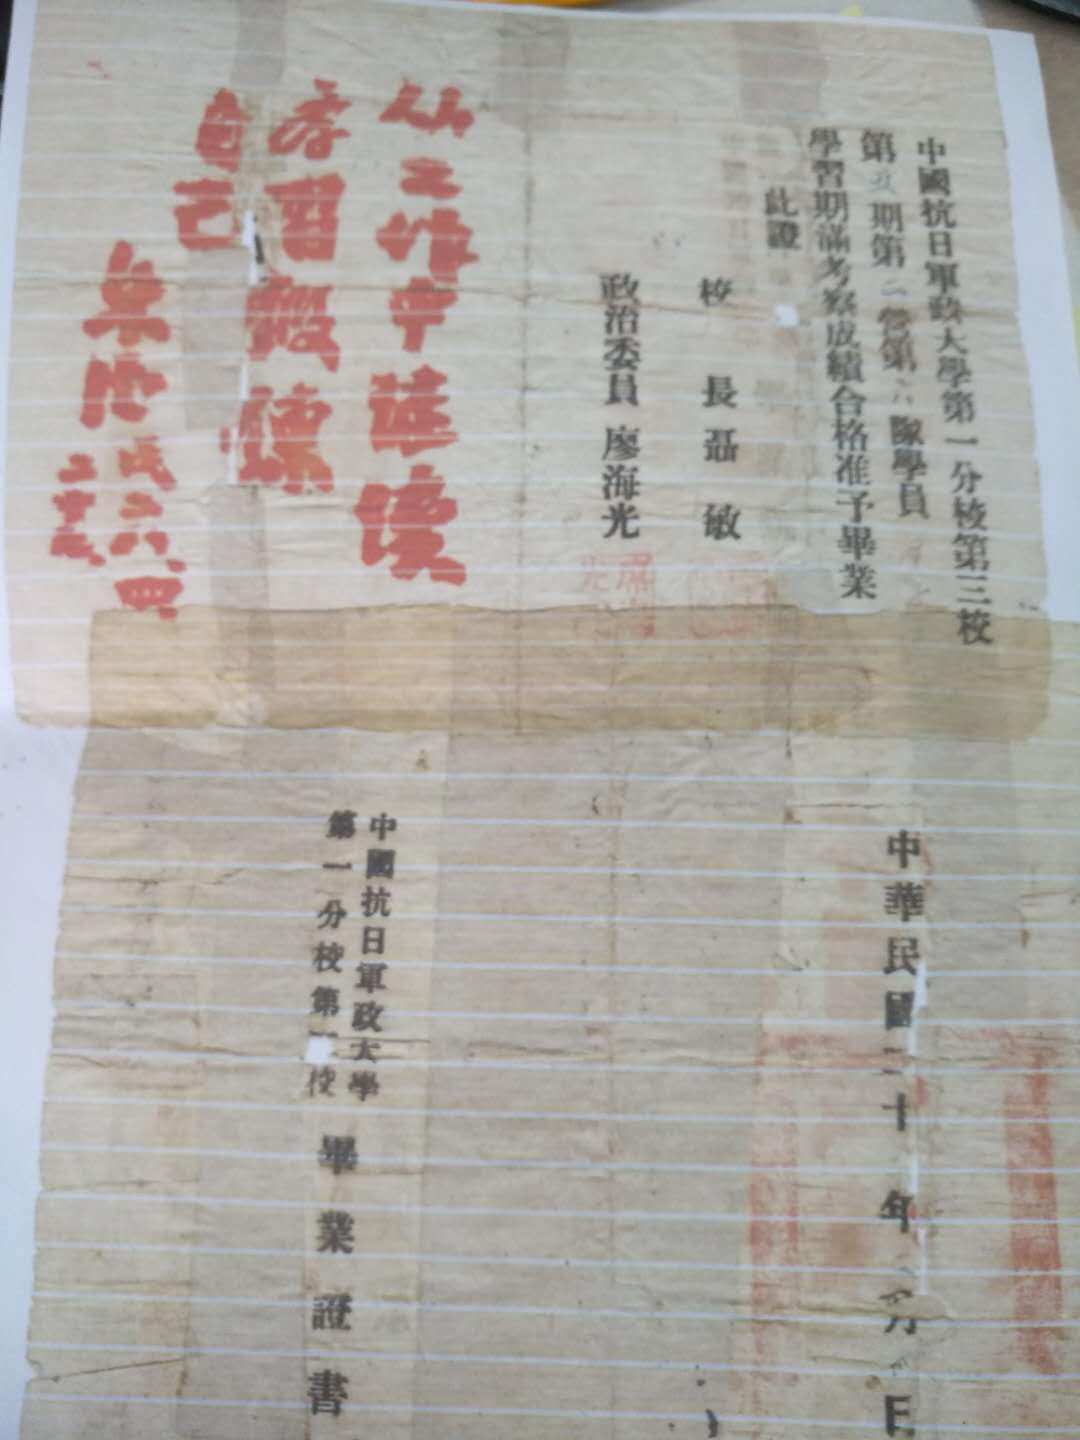 中國抗日軍政大學第一分校第三校
第五期第二營第六隊學員
學習期滿考察成績合格准予畢業
此證
校長聶敏
政治委員廖海光
從工作中繼續
學習鍛鍊
自己
民二八四
中華民國二十年月日
中國抗日軍政大學
第一分校第校
畢業證書